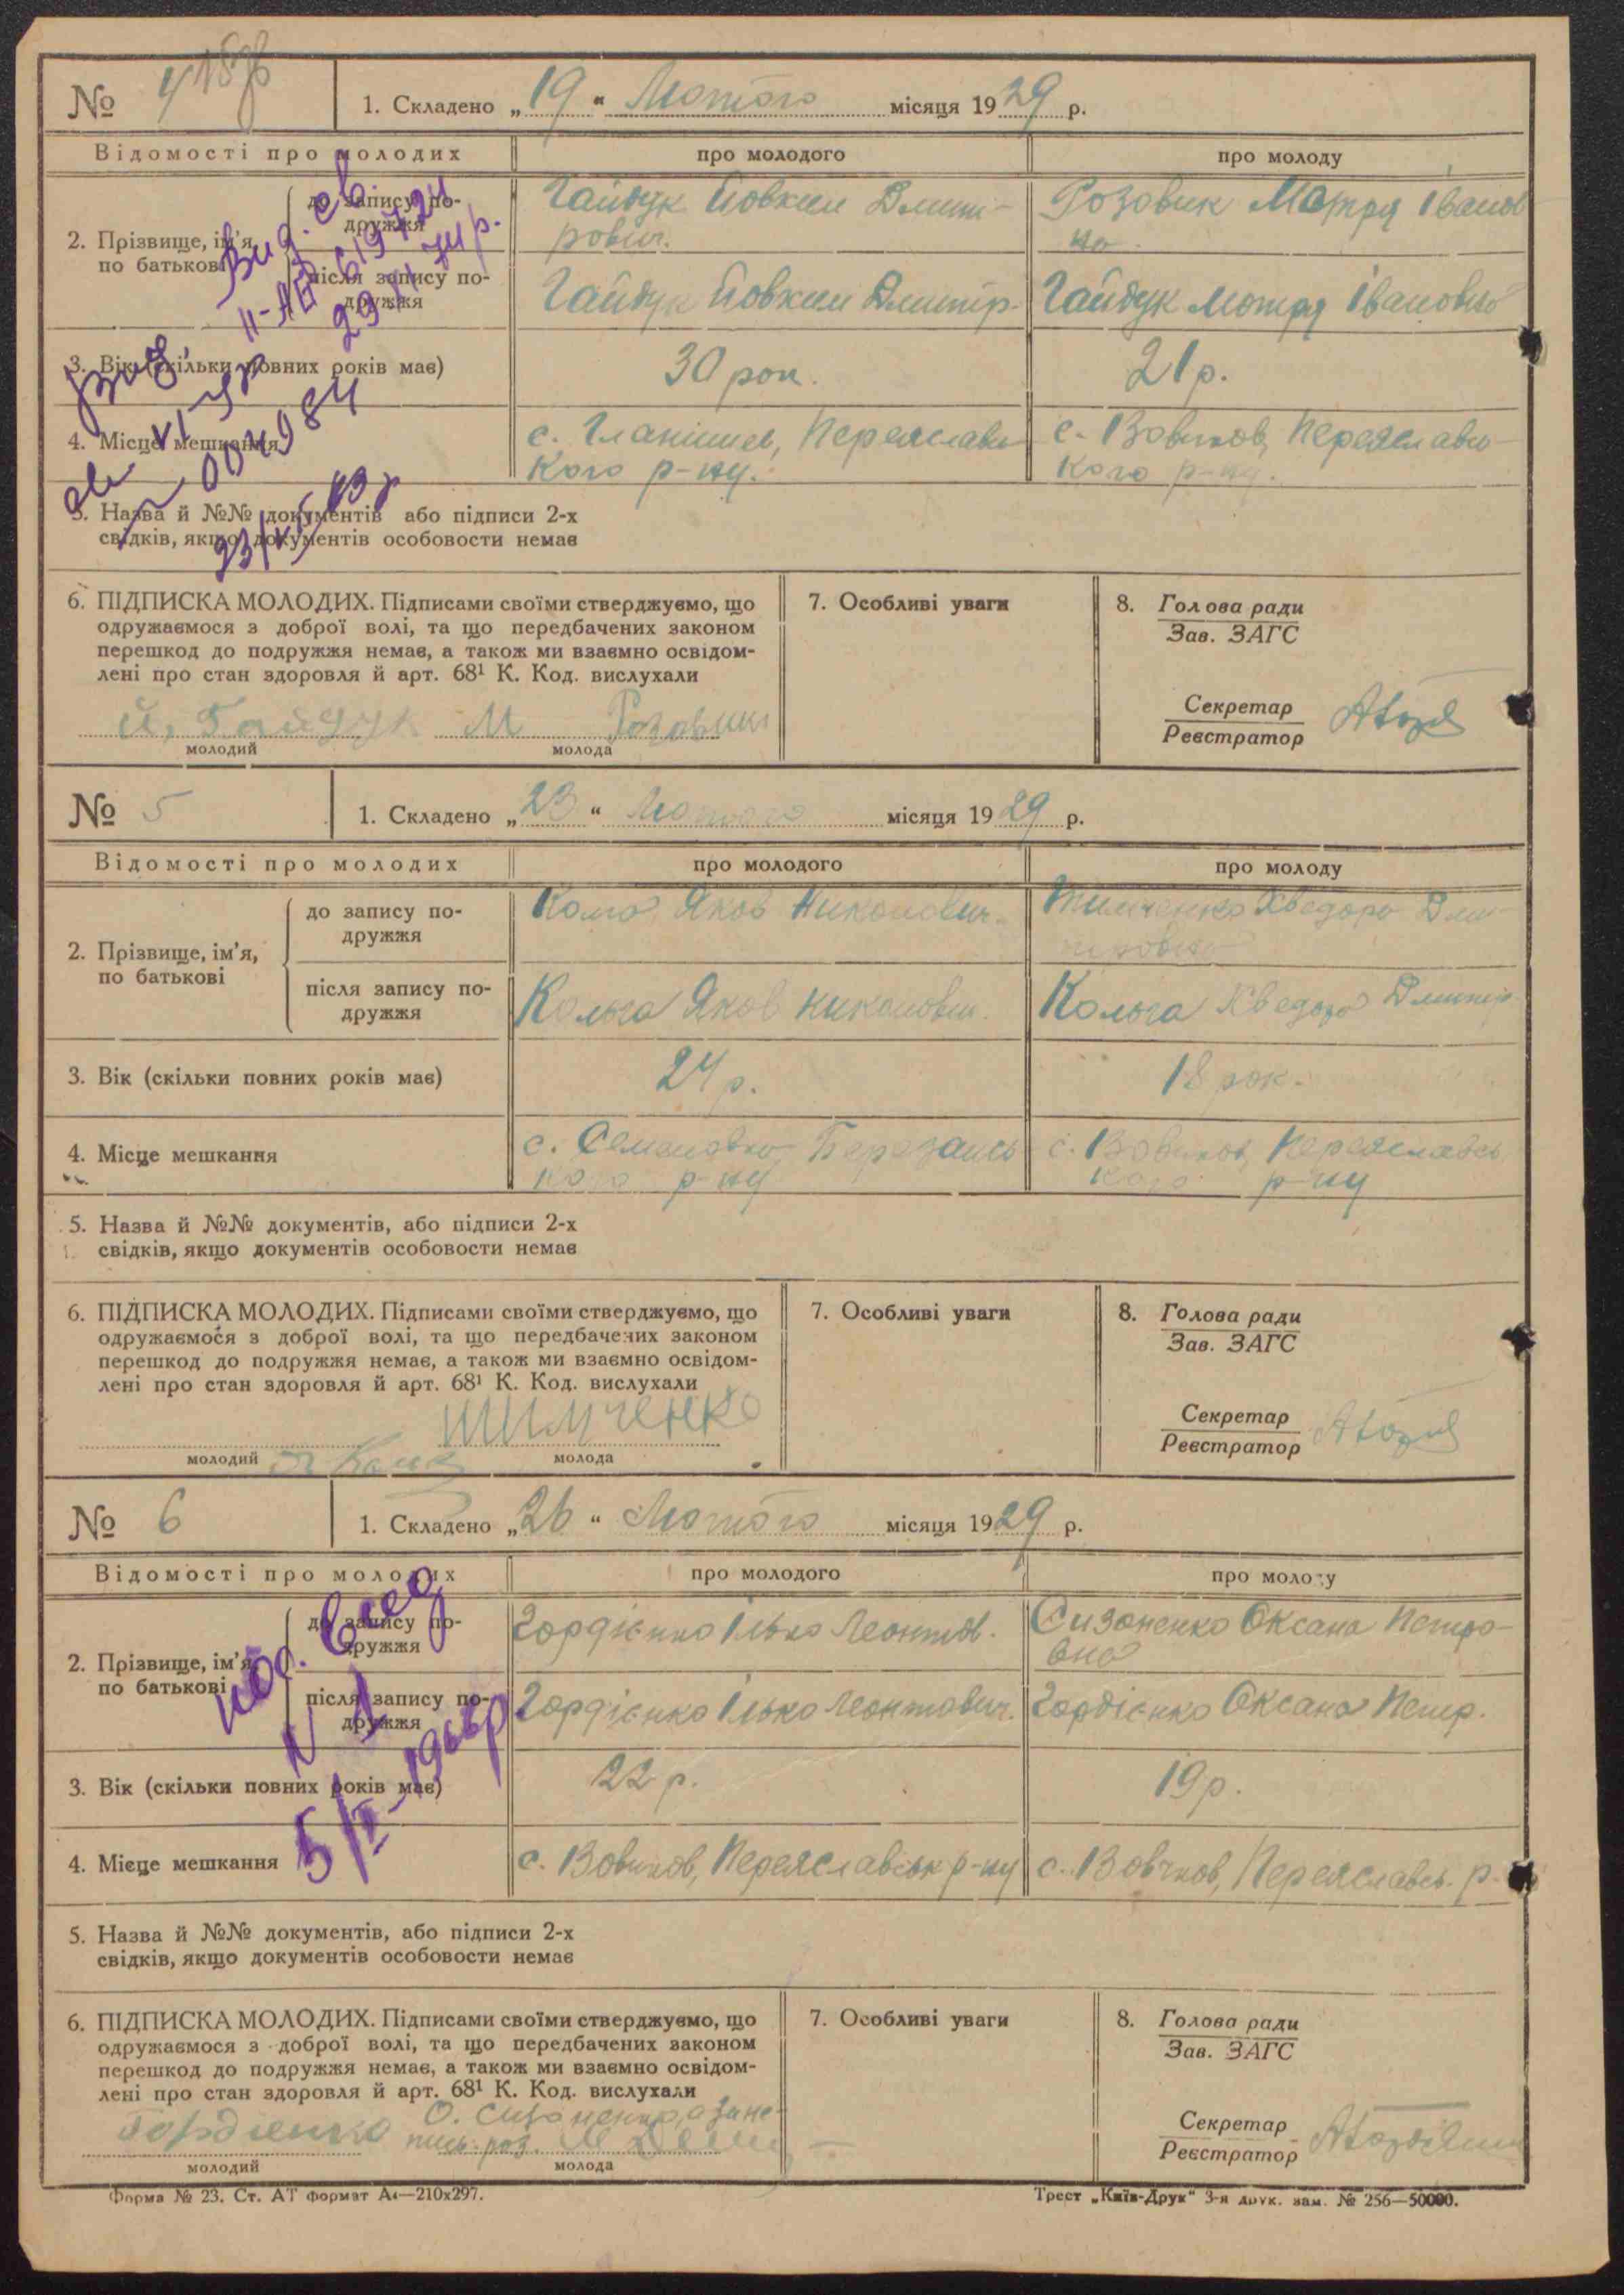 № 4
1. Складено „19“ Лютого місяця 1929 р.
Відомості про молодих
про молодого
про молоду
2. Прізвище, ім'я, по батькові
до запису по-
дружжя
Гайдук Йовхим Дмит-
рович.
Розовик Мотря Іванов
на.
після запису по-
дружжя
Гайдук Йовхим Дмитр.
Гайдук Мотря Івановна
3. Вік (скільки повних років має)
30 рок.
21 р.
4. Місце мешкання
с. Гланишев, Переяславс
кого р-ну.
с. Вовчков, Переяславс-
кого р-ну.
5. Назва й №№ документів або підписи 2-х
свідків, якщо документів особовости немає
Вид. св
II-АБ 619724
29 74 р.
Вид.
св VI-
004984
23/ 43 р
6. ПІДПИСКА МОЛОДИХ. Підписами своїми стверджуємо, що
одружаємося з доброї волі, та що передбачених законом
перешкод до подружжя немає, а також ми взаємно освідом-
лені про стан здоровля й арт. 68¹ К. Код. вислухали
Й. Гайдук М Розовик
молодий
молода
7. Особливі уваги
8. Голова ради
Зав. ЗАГС
Секретар
Реєстратор
№ 5
1. Складено „23“ Лютого місяця 1929 р.
Відомості про молодих
про молодого
про молоду
2. Прізвище, ім'я,
по батькові
до запису по-
дружжя
Яков Никонович.
Хведора Дми-
тровна
після запису по-
дружжя
Кольга Яков Никонович.
Кольга Хведора Дмитр.
3. Вік (скільки повних років має)
24 р.
18 рок.
4. Місце мешкання
с. Семеновка Березансь
кого р-ну
с. Вовчков, Переяславсь
кого р-ну
5. Назва й №№ документів, або підписи 2-х
свідків, якщо документів особовости немає
6. ПІДПИСКА МОЛОДИХ. Підписами своїми стверджуємо, що
одружаємося з доброї волі, та що передбачених законом
перешкод до подружжя немає, а також ми взаємно освідом-
лені про стан здоровля й арт. 68¹ К. Код. вислухали
молодий
молода
7. Особливі уваги
8. Голова ради
Зав. ЗАГС
Секретар
Реєстратор
№ 6
1. Складено „26“ Лютого місяця 1929 р.
Відомості про молодих
про молодого
про молоду
2. Прізвище, ім'я,
по батькові
до запису по-
дружжя
Гордієнко Ілько Леонтов.
Сизоненко Оксана Петро-
вна
після запису по-
дружжя
Гордієнко Ілько Леонтович.
Гордієнко Оксана Петр.
3. Вік (скільки повних років має)
22 р.
19 р.
4. Місце мешкання
с. Вовчков, Переяславськ р-ну
с. Вовчков, Переяславсь. р-
N 1
5. Назва й №№ документів, або підписи 2-х
свідків, якщо документів особовости немає
6. ПІДПИСКА МОЛОДИХ. Підписами своїми стверджуємо, що
одружаємося з доброї волі, та що передбачених законом
перешкод до подружжя немає, а також ми взаємно освідом-
лені про стан здоровля й арт. 68¹ К. Код. вислухали
О. Сизоненко, а за не-
Гордиенко пись. роз.
молодий
молода
7. Особливі уваги
8. Голова ради
Зав. ЗАГС
Секретар
Реєстратор
Форма № 23. Ст. АТ формат А₄—210х297.
Трест „Київ-Друк“ 3-я друк. зам. № 256—50000.